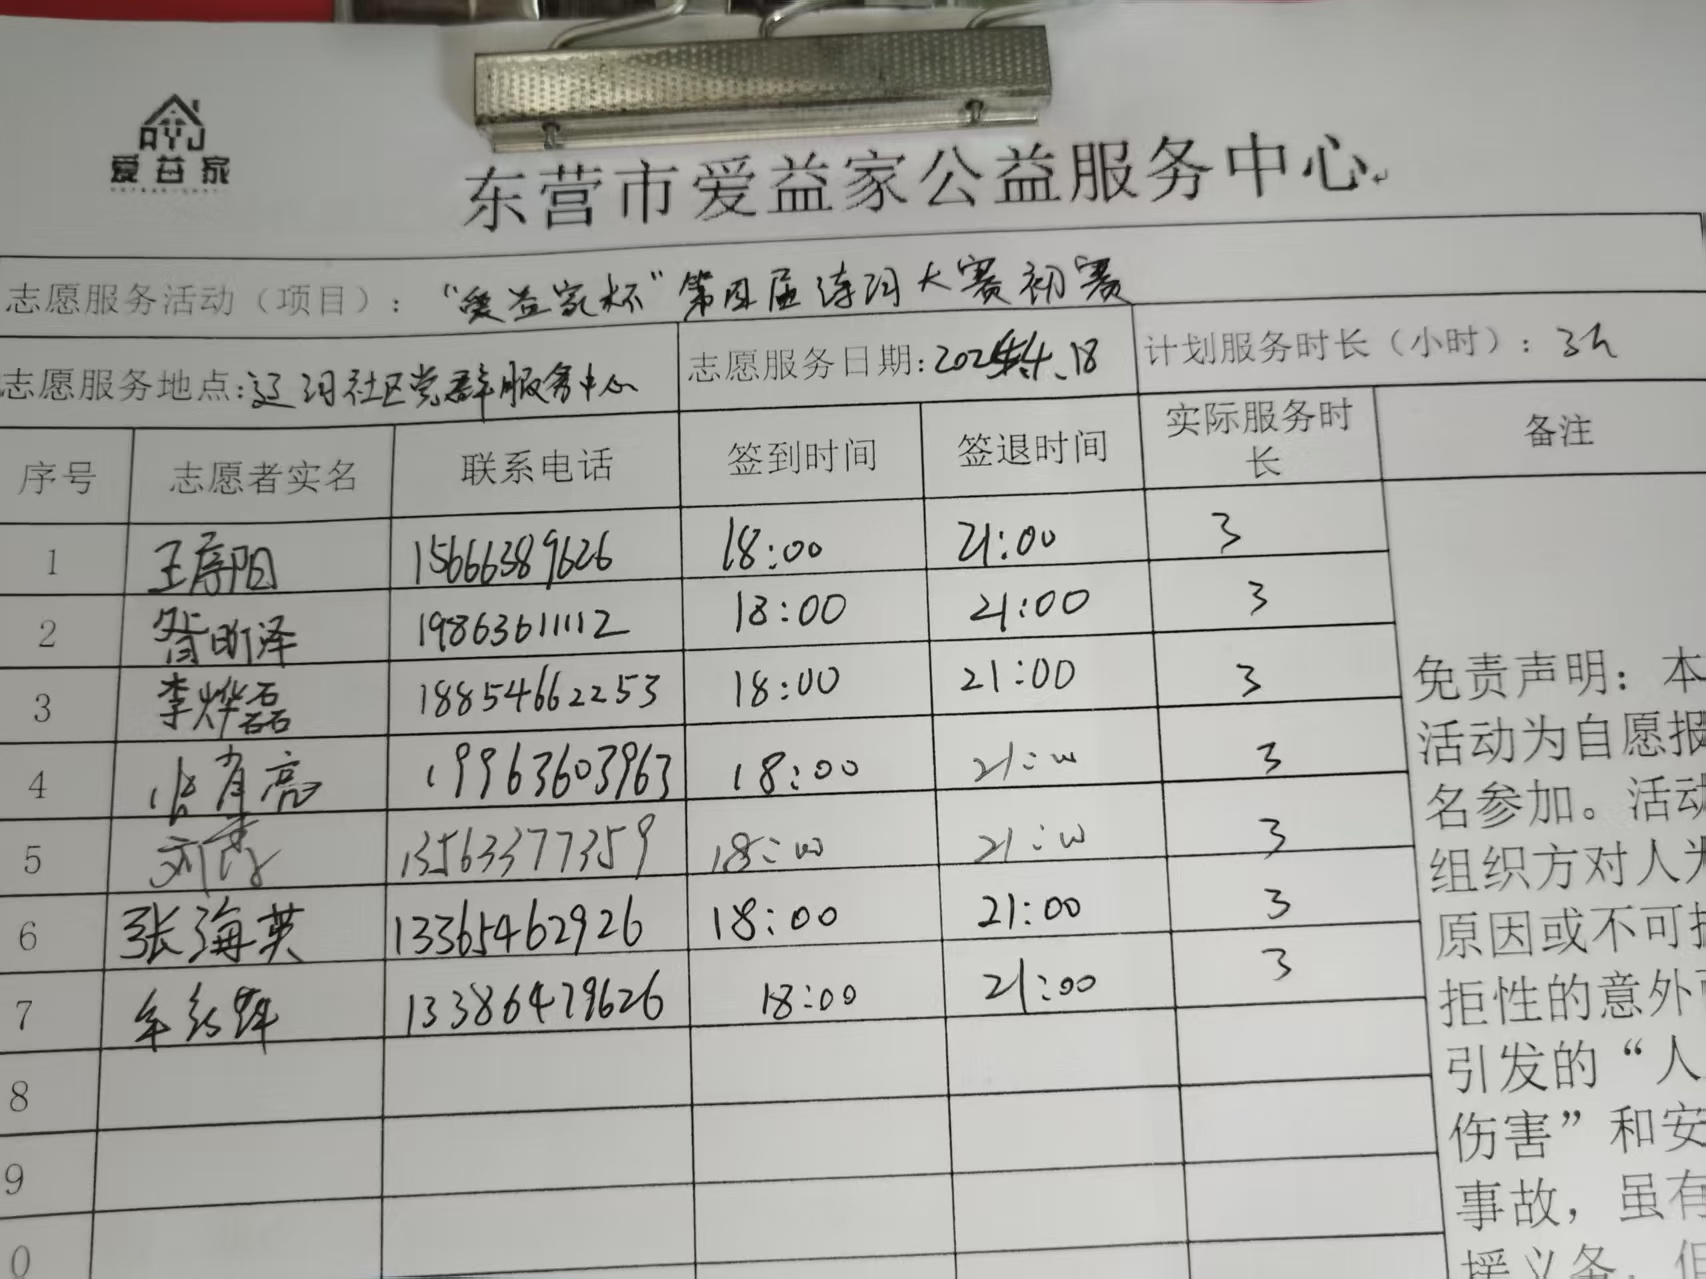 AYJ
爱益家
东营市爱益家公益服务中心
志愿服务活动（项目）：“爱益家杯”第四届诗词大赛初赛
志愿服务地点:辽河社区党群服务中心 志愿服务日期: 4.18 计划服务时长（小时）：3h
序号 志愿者实名 联系电话 签到时间 签退时间 实际服务时长 备注
1 王存阳 15666389626 18:00 21:00 3
2 昕泽 19863611112 18:00 21:00 3
3 李烨磊 18854662253 18:00 21:00 3
4 亮 19963603963 18:00 21:00 3
5 刘 13563377359 18:00 21:00 3
6 张海英 13365462926 18:00 21:00 3
7 13386479626 18:00 21:00 3
8
9
0
免责声明：本
活动为自愿报
名参加。活动
组织方对人为
原因或不可抗
拒性的意外
引发的“人
伤害”和安
事故，虽有
援义务，但